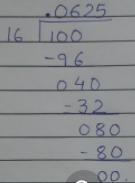 .0625
16 100
-96
040
-32
080
-80
00.